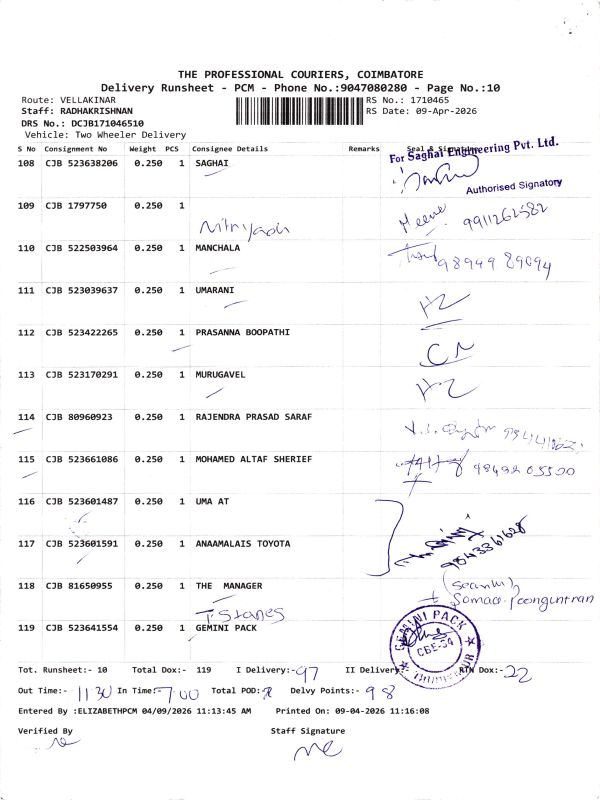 THE PROFESSIONAL COURIERS, COIMBATORE
Delivery Runsheet - PCM - Phone No.:9047080280 - Page No.:10
Route: VELLAKINAR
RS No.: 1710465
Staff: RADHAKRISHNAN
RS Date: 09-Apr-2026
DRS No.: DCJB171046510
Vehicle: Two Wheeler Delivery
S No Consignment No Weight PCS Consignee Details Remarks Seal & Signature
For Saghai Engineering Pvt. Ltd.
108 CJB 523638206 0.250 1 SAGHAI
Authorised Signatory
109 CJB 1797750 0.250 1
9911262582
110 CJB 522503964 0.250 1 MANCHALA
98949 89094
111 CJB 523039637 0.250 1 UMARANI
112 CJB 523422265 0.250 1 PRASANNA BOOPATHI
113 CJB 523170291 0.250 1 MURUGAVEL
114 CJB 80960923 0.250 1 RAJENDRA PRASAD SARAF
115 CJB 523661086 0.250 1 MOHAMED ALTAF SHERIEF
98432 05500
116 CJB 523601487 0.250 1 UMA AT
117 CJB 523601591 0.250 1 ANAAMALAIS TOYOTA
9543361628
118 CJB 81650955 0.250 1 THE MANAGER
T. Stanes
119 CJB 523641554 0.250 1 GEMINI PACK
GEMINI PACK
CBE-34
Tot. Runsheet:- 10 Total Dox:- 119 I Delivery:-97 II Delivery:- RTN Dox:-22
Out Time:- 1130 In Time:-7.00 Total POD: Delvy Points:- 98
Entered By :ELIZABETHPCM 04/09/2026 11:13:45 AM Printed On: 09-04-2026 11:16:08
Verified By Staff Signature